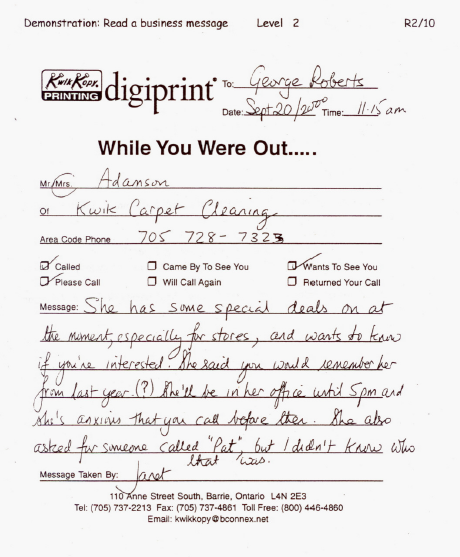 Demonstration: Read a business message Level 2 R2/10
Kwik Kopy PRINTING digiprint To: George Roberts
Date: Sept 20/2000 Time: 11.15 am
While You Were Out.....
Mr./Mrs. Adamson
Of Kwik Carpet Cleaning
Area Code Phone 705 728-7323
Called Came By To See You Wants To See You
Please Call Will Call Again Returned Your Call
Message: She has some special deals on at
the moment, especially for stores, and wants to know
if you're interested. She said you would remember her
from last year. (?) She'll be in her office until 5pm and
she's anxious that you call before then. She also
asked for someone called "Pat", but I didn't know who
that was.
Message Taken By: Janet
110 Anne Street South, Barrie, Ontario L4N 2E3
Tel: (705) 737-2213 Fax: (705) 737-4861 Toll Free: (800) 446-4860
Email: kwikkopy@bconnex.net